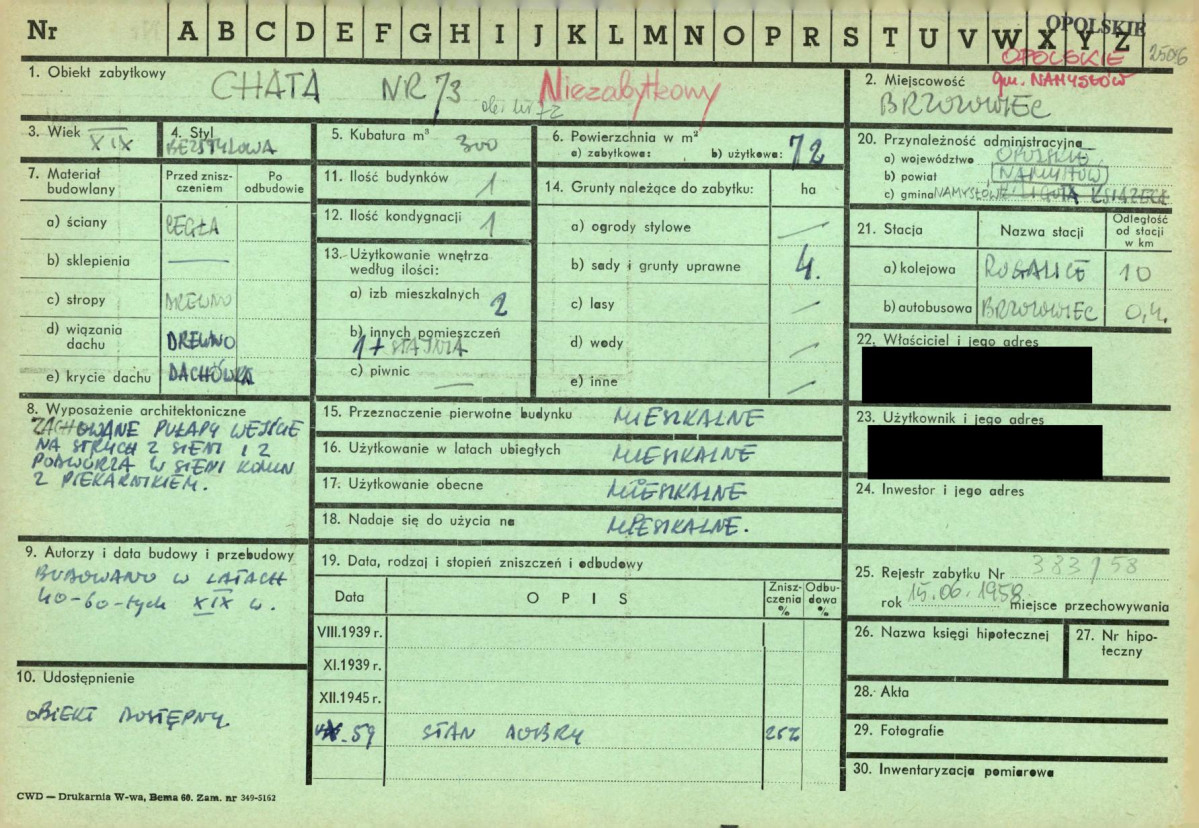 Nr A B C D E F G H I J K L M N O P R S T U V W X Y Z
OPOLSKIE
OPOLSKIE
gm. NAMYSŁÓW
1. Obiekt zabytkowy
CHATA NR 73
Niezabytkowy
2. Miejscowość
BRZOZOWIEC
3. Wiek XIX
4. Styl
BEZSTYLOWA
5. Kubatura m³ 300
6. Powierzchnia w m²
a) zabytkowa: b) użytkowa: 72
20. Przynależność administracyjna
a) województwo OPOLSKIE
b) powiat NAMYSŁÓW
c) gmina NAMYSŁÓW LIGOTA KSIĄŻĘCA
7. Materiał budowlany
Przed znisz-
czeniem
Po
odbudowie
a) ściany CEGŁA
b) sklepienia —
c) stropy DREWNO
d) wiązania
dachu DREWNO
e) krycie dachu DACHÓWKA
11. Ilość budynków 1
12. Ilość kondygnacji 1
13. Użytkowanie wnętrza
według ilości:
a) izb mieszkalnych 2
b) innych pomieszczeń
1 + STAJNIA
c) piwnic —
14. Grunty należące do zabytku: ha
a) ogrody stylowe /
b) sady i grunty uprawne 4.
c) lasy /
d) wody /
e) inne /
21. Stacja
Nazwa stacji
Odległość
od stacji
w km
a) kolejowa ROGALICE 10
b) autobusowa BRZOZOWIEC 0,4.
22. Właściciel i jego adres
23. Użytkownik i jego adres
24. Inwestor i jego adres
8. Wyposażenie architektoniczne
ZACHOWANE PUŁAPY WEJŚCIE
NA STRYCH Z SIENI I Z
PODWÓRZA W SIENI KOMIN
Z PIEKARNIKIEM.
15. Przeznaczenie pierwotne budynku MIESZKALNE
16. Użytkowanie w latach ubiegłych MIESZKALNE
17. Użytkowanie obecne MIESZKALNE
18. Nadaje się do użycia na MIESZKALNE.
9. Autorzy i data budowy i przebudowy
BUDOWANO W LATACH
40-60-tych XIX w.
10. Udostępnienie
OBIEKT DOSTĘPNY
19. Data, rodzaj i stopień zniszczeń i odbudowy
Data
OPIS
Znisz-
czenia
%
Odbu-
dowa
%
VIII.1939 r.
XI.1939 r.
XII.1945 r.
59 STAN DOBRY 25%
25. Rejestr zabytku Nr 383/58
rok 15.06.1958 miejsce przechowywania
26. Nazwa księgi hipotecznej
27. Nr hipo-
teczny
28. Akta
29. Fotografie
30. Inwentaryzacja pomiarowa
CWD — Drukarnia W-wa, Bema 60. Zam. nr 349-5162